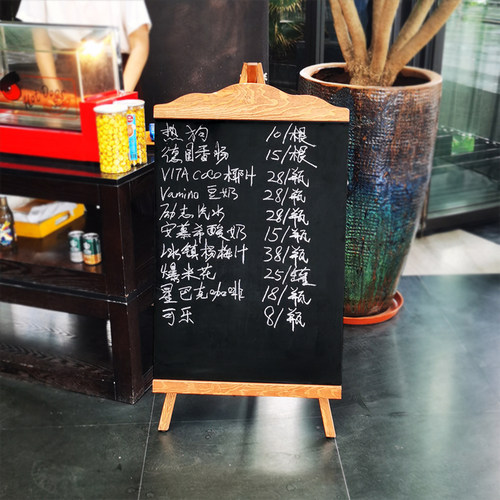 Hot Dogs
热狗 10/根
德国香肠 15/根
VITA COCO 椰汁 28/瓶
Vamino 豆奶 28/瓶
励志汽水 28/瓶
安慕希酸奶 15/瓶
冰镇杨梅汁 38/瓶
爆米花 25/罐
星巴克咖啡 18/瓶
可乐 8/瓶